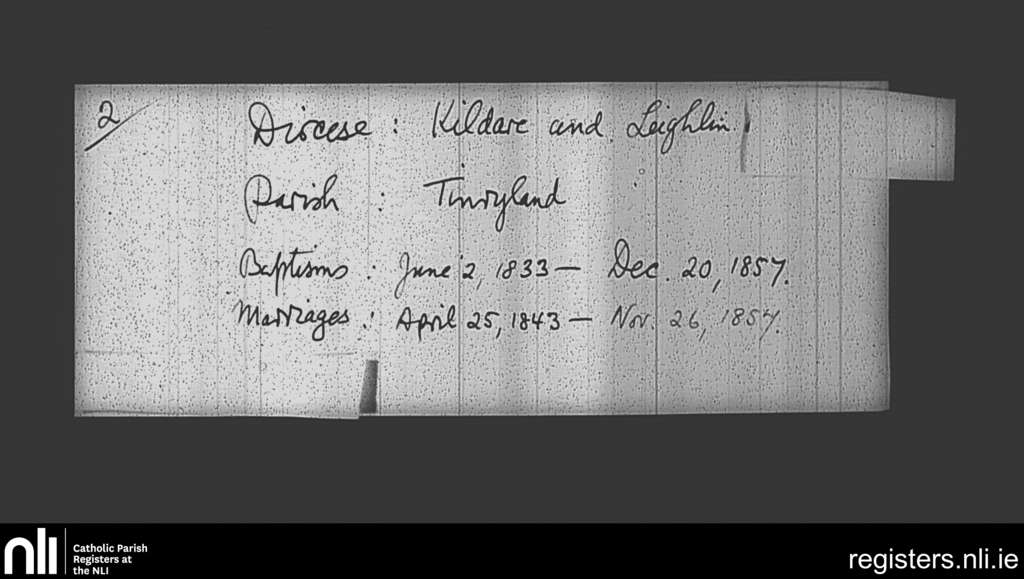 2/
Diocese : Kildare and Leighlin.
Parish : Tinryland
Baptisms : June 2, 1833 – Dec. 20, 1857.
Marriages : April 25, 1843 – Nov. 26, 1857.
nli
Catholic Parish
Registers at
the NLI
registers.nli.ie